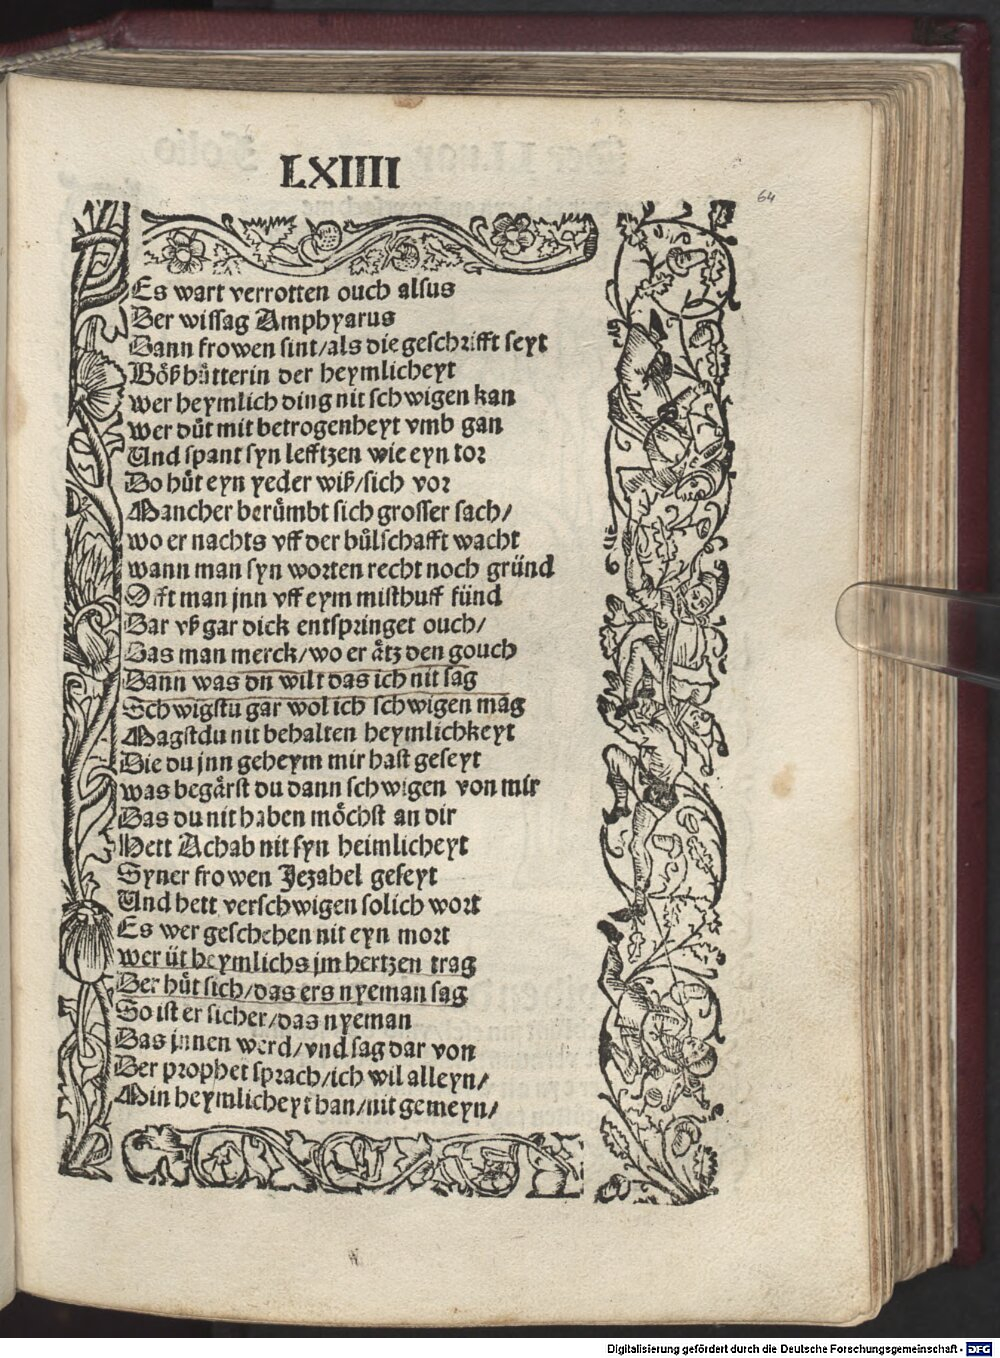 LXIIII
64
Es wart verrotten ouch alsus
Der wissag Amphyarus
Dann frowen sint/als die geschrifft seyt
Bôß hûtterin der heymlicheyt
wer heymlich ding nit schwigen kan
wer dût mit betrogenheyt vmb gan
Und spant syn lefftzen wie eyn tor
Do hût eyn yeder wiß/sich vor
Mancher berûmbt sich grosser sach/
wo er nachts vff der bûlschafft wacht
wann man syn worten recht noch gründ
Offt man jnn vff eym misthuff fünd
Dar vß gar dick entspringet ouch/
Das man merck/wo er ätz den gouch
Dann was dn wilt das ich nit sag
Schwigstu gar wol ich schwigen mag
Magstdu nit behalten heymlichkeyt
Die du jnn geheym mir hast geseyt
was begärst du dann schwigen von mir
Das du nit haben môchst an dir
Hett Achab nit syn heimlicheyt
Syner frowen Jezabel geseyt
Und hett verschwigen solich wort
Es wer geschehen nit eyn mort
wer üt heymlichs jm hertzen trag
Der hût sich/das ers nyeman sag
So ist er sicher/das nyeman
Das jnnen werd/vnd sag dar von
Der prophet sprach/ich wil alleyn/
Min heymlicheyt han/nit gemeyn/
Digitalisierung gefördert durch die Deutsche Forschungsgemeinschaft - DFG